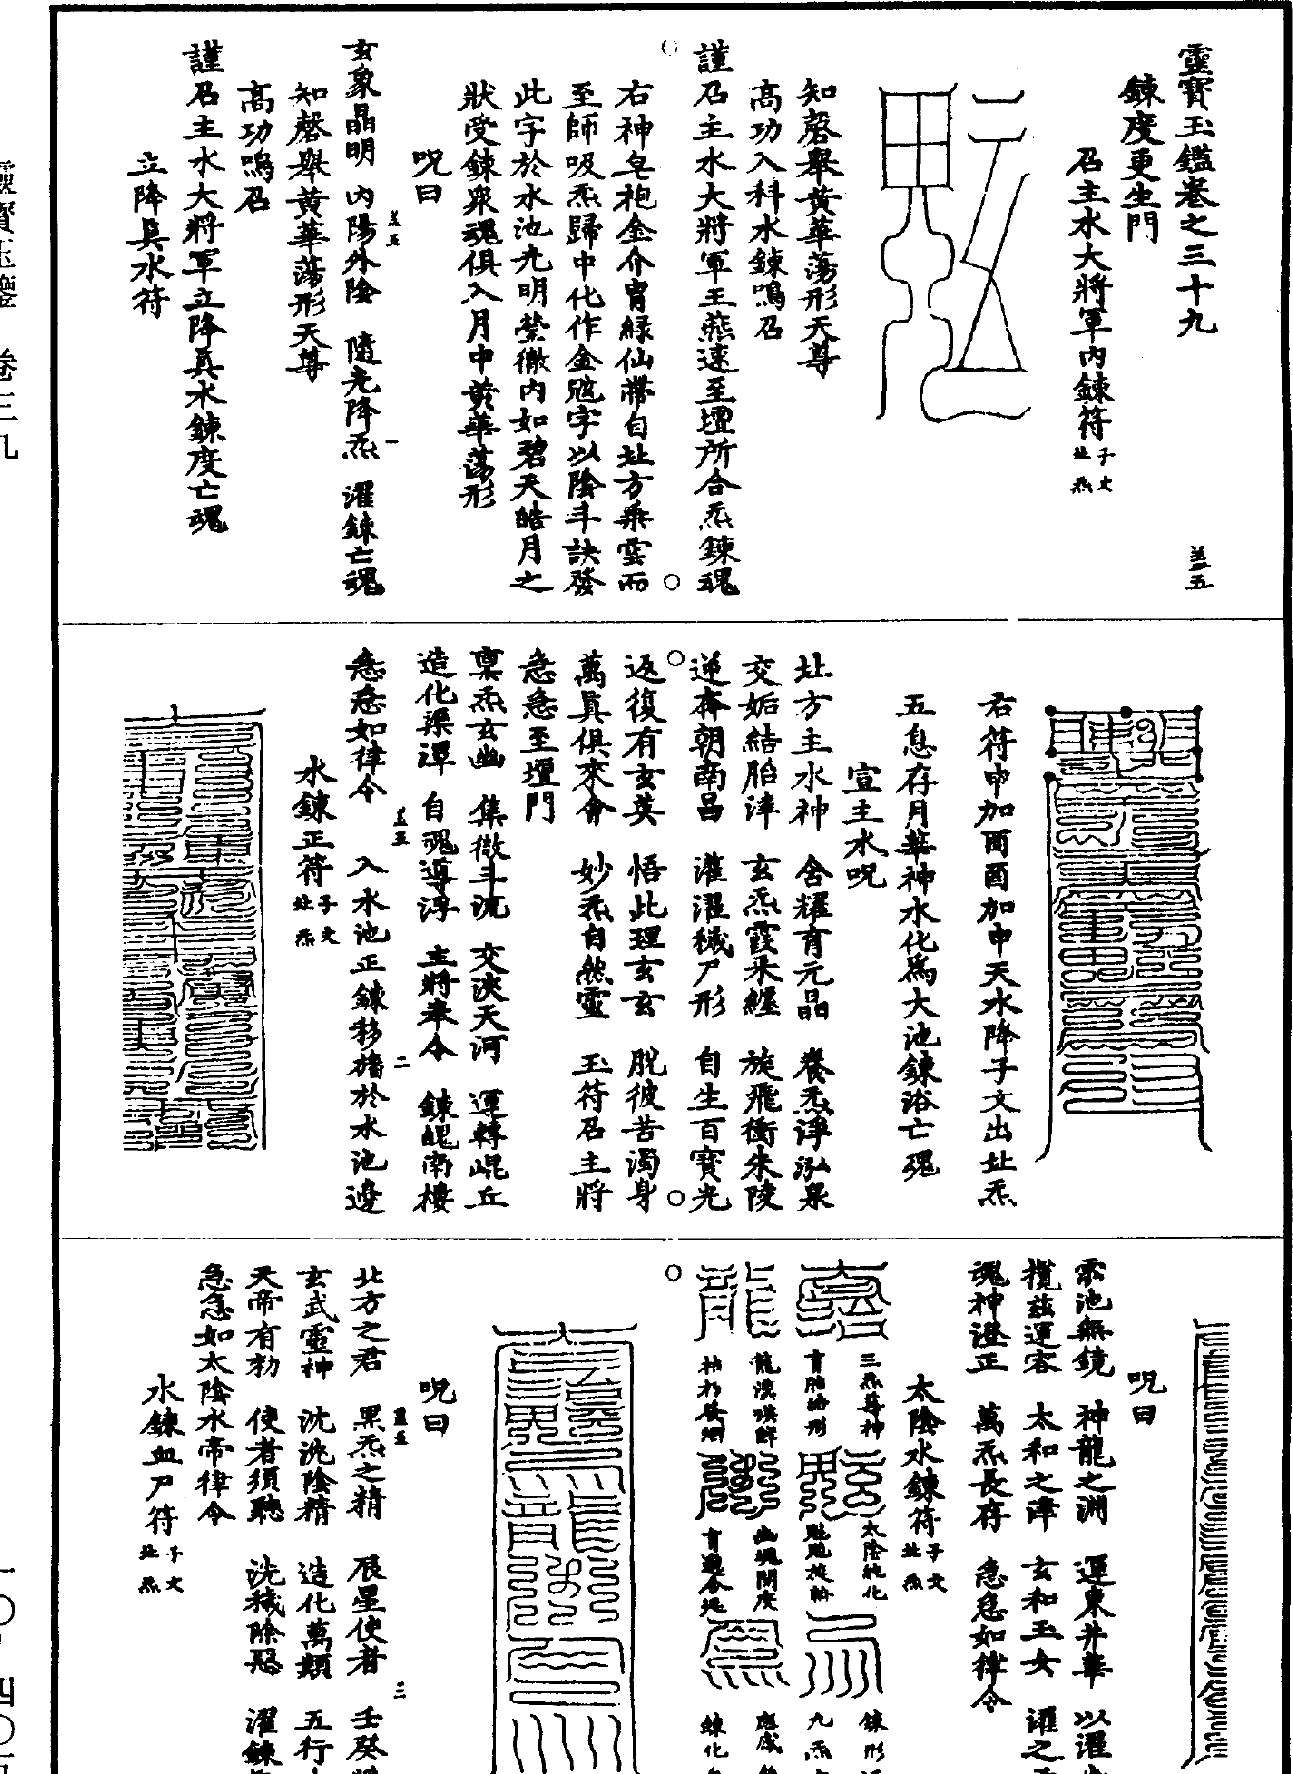 靈寶玉鑑卷之三十九
鍊度更生門
召主水大將軍內鍊符
子文
北炁
知磬舉黃華蕩形天尊
高功入科水鍊鳴召
謹召主水大將軍王燕速至壇所合炁鍊魂
右神皂袍金介胄綠仙帶自北方乘雲而
至師吸炁歸中化作金𩲃字以陰斗訣發
此字於水池光明瑩徹內如碧天皓月之
狀受鍊眾魂俱入月中黃華蕩形
呪曰
玄象晶明　內陽外陰　隨光降炁　濯鍊亡魂
知磬舉黃華蕩形天尊
高功鳴召
謹召主水大將軍立降真水鍊度亡魂
立降真水符
右符申加酉酉加申天水降子文出北炁
五息存月華神水化為大池鍊浴亡魂
宣主水呪
北方主水神　含耀育元晶　養炁浮泓泉
交姤結胎津　玄炁霞朵纏　旋飛衝朱陵
逆奔朝南昌　灌濯穢尸形　自生百寶光
返復有玄英　悟此理玄玄　脫彼苦濁身
萬真俱來會　妙炁自然靈　玉符召主將
急急至壇門
稟炁玄幽　集微斗沉　交浹天河　運轉崐丘
造化渠潭　自魂導浮　主將奉令　鍊魄南樓
急急如律令　入水池正鍊移旛於水池邊
水鍊正符
子文
北炁
呪曰
霛池無鏡　神龍之淵　運東井華　以濯
攬茲運客　太和之津　玄和玉女　濯之
魂神澄正　萬炁長存　急急如律令
太陰水鍊符
子文
北炁
三炁尊神
育胎結形
龍漢
太陰純化
幽魂開度
鍊形
九炁
應感
鍊化
呪曰
北方之君　黑炁之精　辰星使者　壬癸
玄武靈神　沈洗陰精　造化萬類　五行
天帝有勑　使者須聽　洗穢除惡　濯鍊
急急如太陰水帝律令
水鍊血尸符
子文
北炁
靈寶玉鑒　卷三九
一〇—四〇